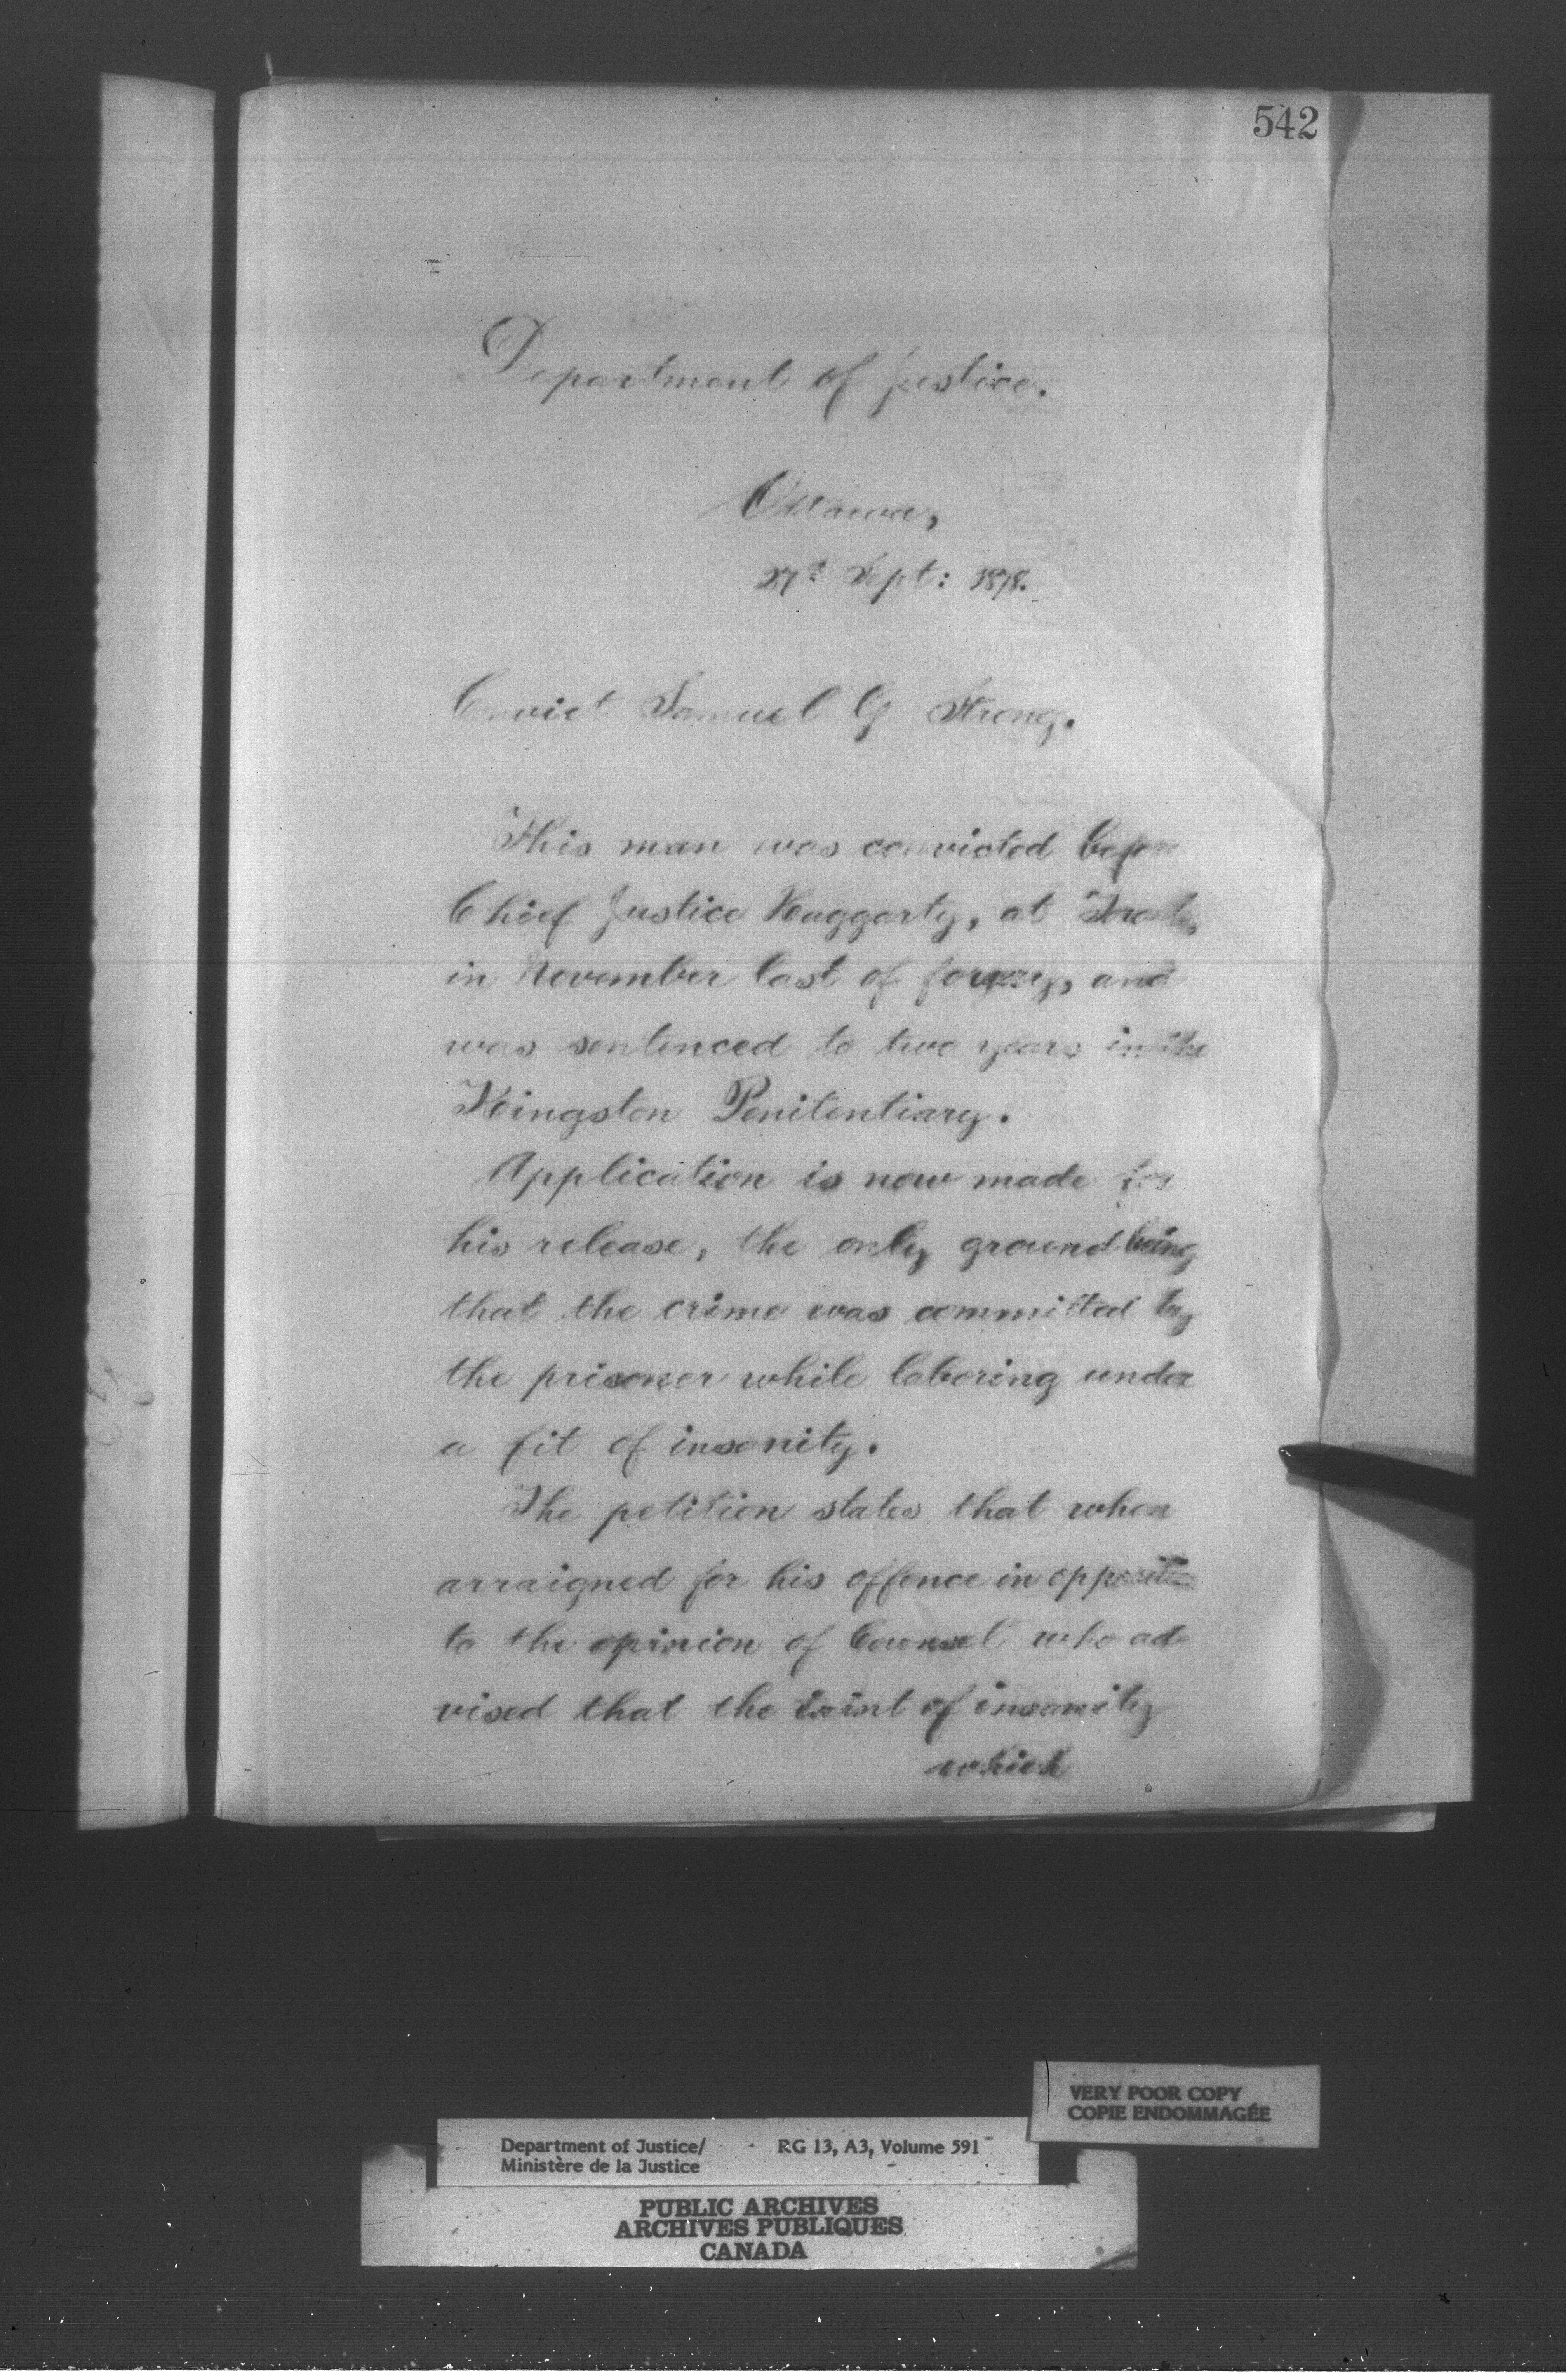 542
Department of Justice.
Ottawa,
27th Sept: 1878.
Convict Samuel G Strong.
This man was convicted before
Chief Justice Haggarty, at Toronto,
in November last of forgery, and
was sentenced to two years in the
Kingston Penitentiary.
Application is now made for
his release, the only ground being
that the crime was committed by
the prisoner while laboring under
a fit of insanity.
The petition states that when
arraigned for his offence in opposition
to the opinion of Counsel who ad-
vised that the taint of insanity
which
VERY POOR COPY
COPIE ENDOMMAGÉE
Department of Justice/ RG 13, A3, Volume 591
Ministère de la Justice
PUBLIC ARCHIVES
ARCHIVES PUBLIQUES
CANADA